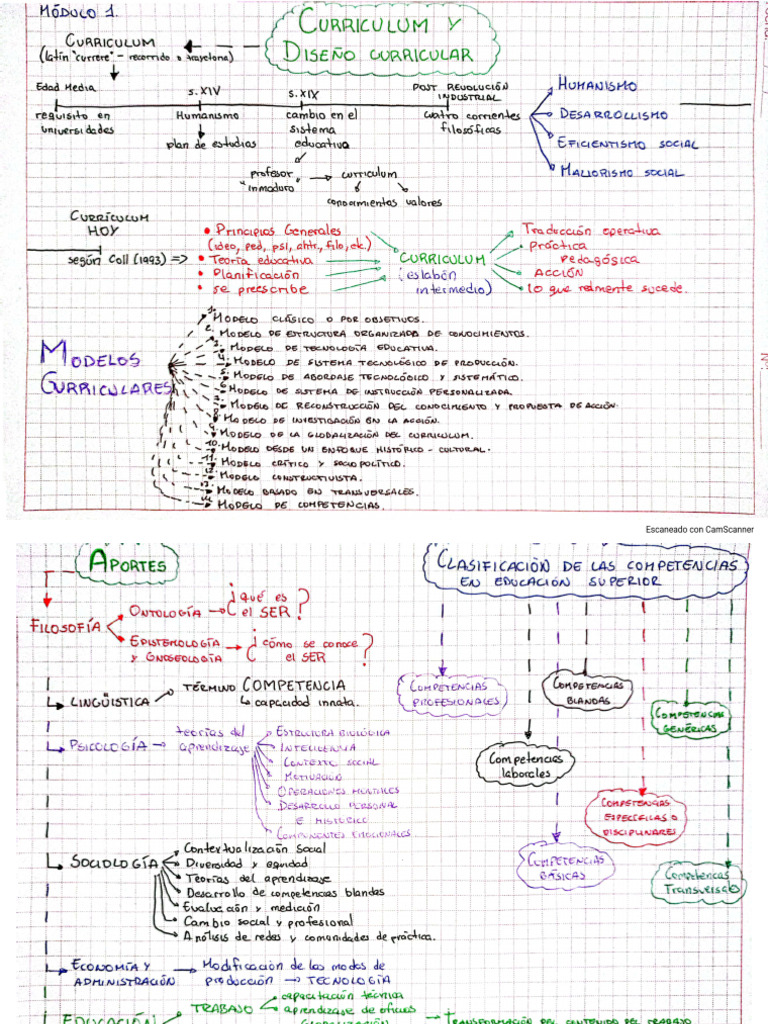 MÓDULO 1.
CURRICULUM Y
DISEÑO CURRICULAR
CURRICULUM
(latín "currere" - recorrido o trayectoria)
Edad Media
S.XIV
S.XIX
POST REVOLUCIÓN
INDUSTRIAL
requisito en
universidades
Humanismo
plan de estudios
cambio en el
sistema
educativo
cuatro corrientes
filosóficas
HUMANISMO
DESARROLLISMO
EFICIENTISMO SOCIAL
MALIORISMO SOCIAL
profesor
"inmaduro"
curriculum
conocimientos valores
CURRÍCULUM
HOY
según Coll (1993) =>
• Principios Generales
(ideo, ped, psi, antr, filo, etc.)
• Teoría educativa
• Planificación
• se preescribe
CURRICULUM
(eslabón
intermedio)
Traducción operativa
práctica
pedagógica
ACCIÓN
lo que realmente sucede.
MODELOS
CURRICULARES
1. MODELO CLÁSICO O POR OBJETIVOS.
2. MODELO DE ESTRUCTURA ORGANIZADA DE CONOCIMIENTOS.
3. MODELO DE TECNOLOGÍA EDUCATIVA.
4. MODELO DE SISTEMA TECNOLÓGICO DE PRODUCCIÓN.
5. MODELO DE ABORDAJE TECNOLÓGICO Y SISTEMÁTICO.
6. MODELO DE SISTEMA DE INSTRUCCIÓN PERSONALIZADA.
7. MODELO DE RECONSTRUCCIÓN DEL CONOCIMIENTO Y PROPUESTA DE ACCIÓN.
8. MODELO DE INVESTIGACIÓN EN LA ACCIÓN.
9. MODELO DE LA GLOBALIZACIÓN DEL CURRICULUM.
10. MODELO DESDE UN ENFOQUE HISTÓRICO - CULTURAL.
11. MODELO CRÍTICO Y SOCIOPOLÍTICO.
12. MODELO CONSTRUCTIVISTA.
13. MODELO BASADO EN TRANSVERSALES.
14. MODELO DE COMPETENCIAS.
Escaneado con CamScanner
APORTES
FILOSOFÍA
ONTOLOGÍA
¿qué es
el SER?
EPISTEMOLOGÍA
Y GNOSEOLOGÍA
¿cómo se conoce
el SER?
LINGÜISTICA
TÉRMINO COMPETENCIA
capacidad innata.
PSICOLOGÍA
teorías del
aprendizaje
ESTRUCTURA BIOLÓGICA
INTELIGENCIA
CONTEXTO SOCIAL
MOTIVACIÓN
OPERACIONES MULTIPLES
DESARROLLO PERSONAL
E HISTÓRICO
COMPONENTES EMOCIONALES
SOCIOLOGÍA
Contextualización social
Diversidad y equidad
Teorías del aprendizaje
Desarrollo de competencias blandas
Evaluación y medición
Cambio social y profesional
Análisis de redes y comunidades de práctica.
ECONOMÍA Y
ADMINISTRACIÓN
Modificación de los modos de
producción → TECNOLOGÍA
EDUCACIÓN
TRABAJO
capacitación técnica
aprendizaje de oficios
GLOBALIZACIÓN
TRANSFORMACIÓN DEL CONTENIDO DEL TRABAJO
CLASIFICACIÓN DE LAS COMPETENCIAS
EN EDUCACIÓN SUPERIOR
COMPETENCIAS
PROFESIONALES
COMPETENCIAS
BLANDAS
COMPETENCIAS
GENÉRICAS
Competencias
laborales
COMPETENCIAS
ESPECÍFICAS O
DISCIPLINARES
COMPETENCIAS
BÁSICAS
Competencias
Transversales